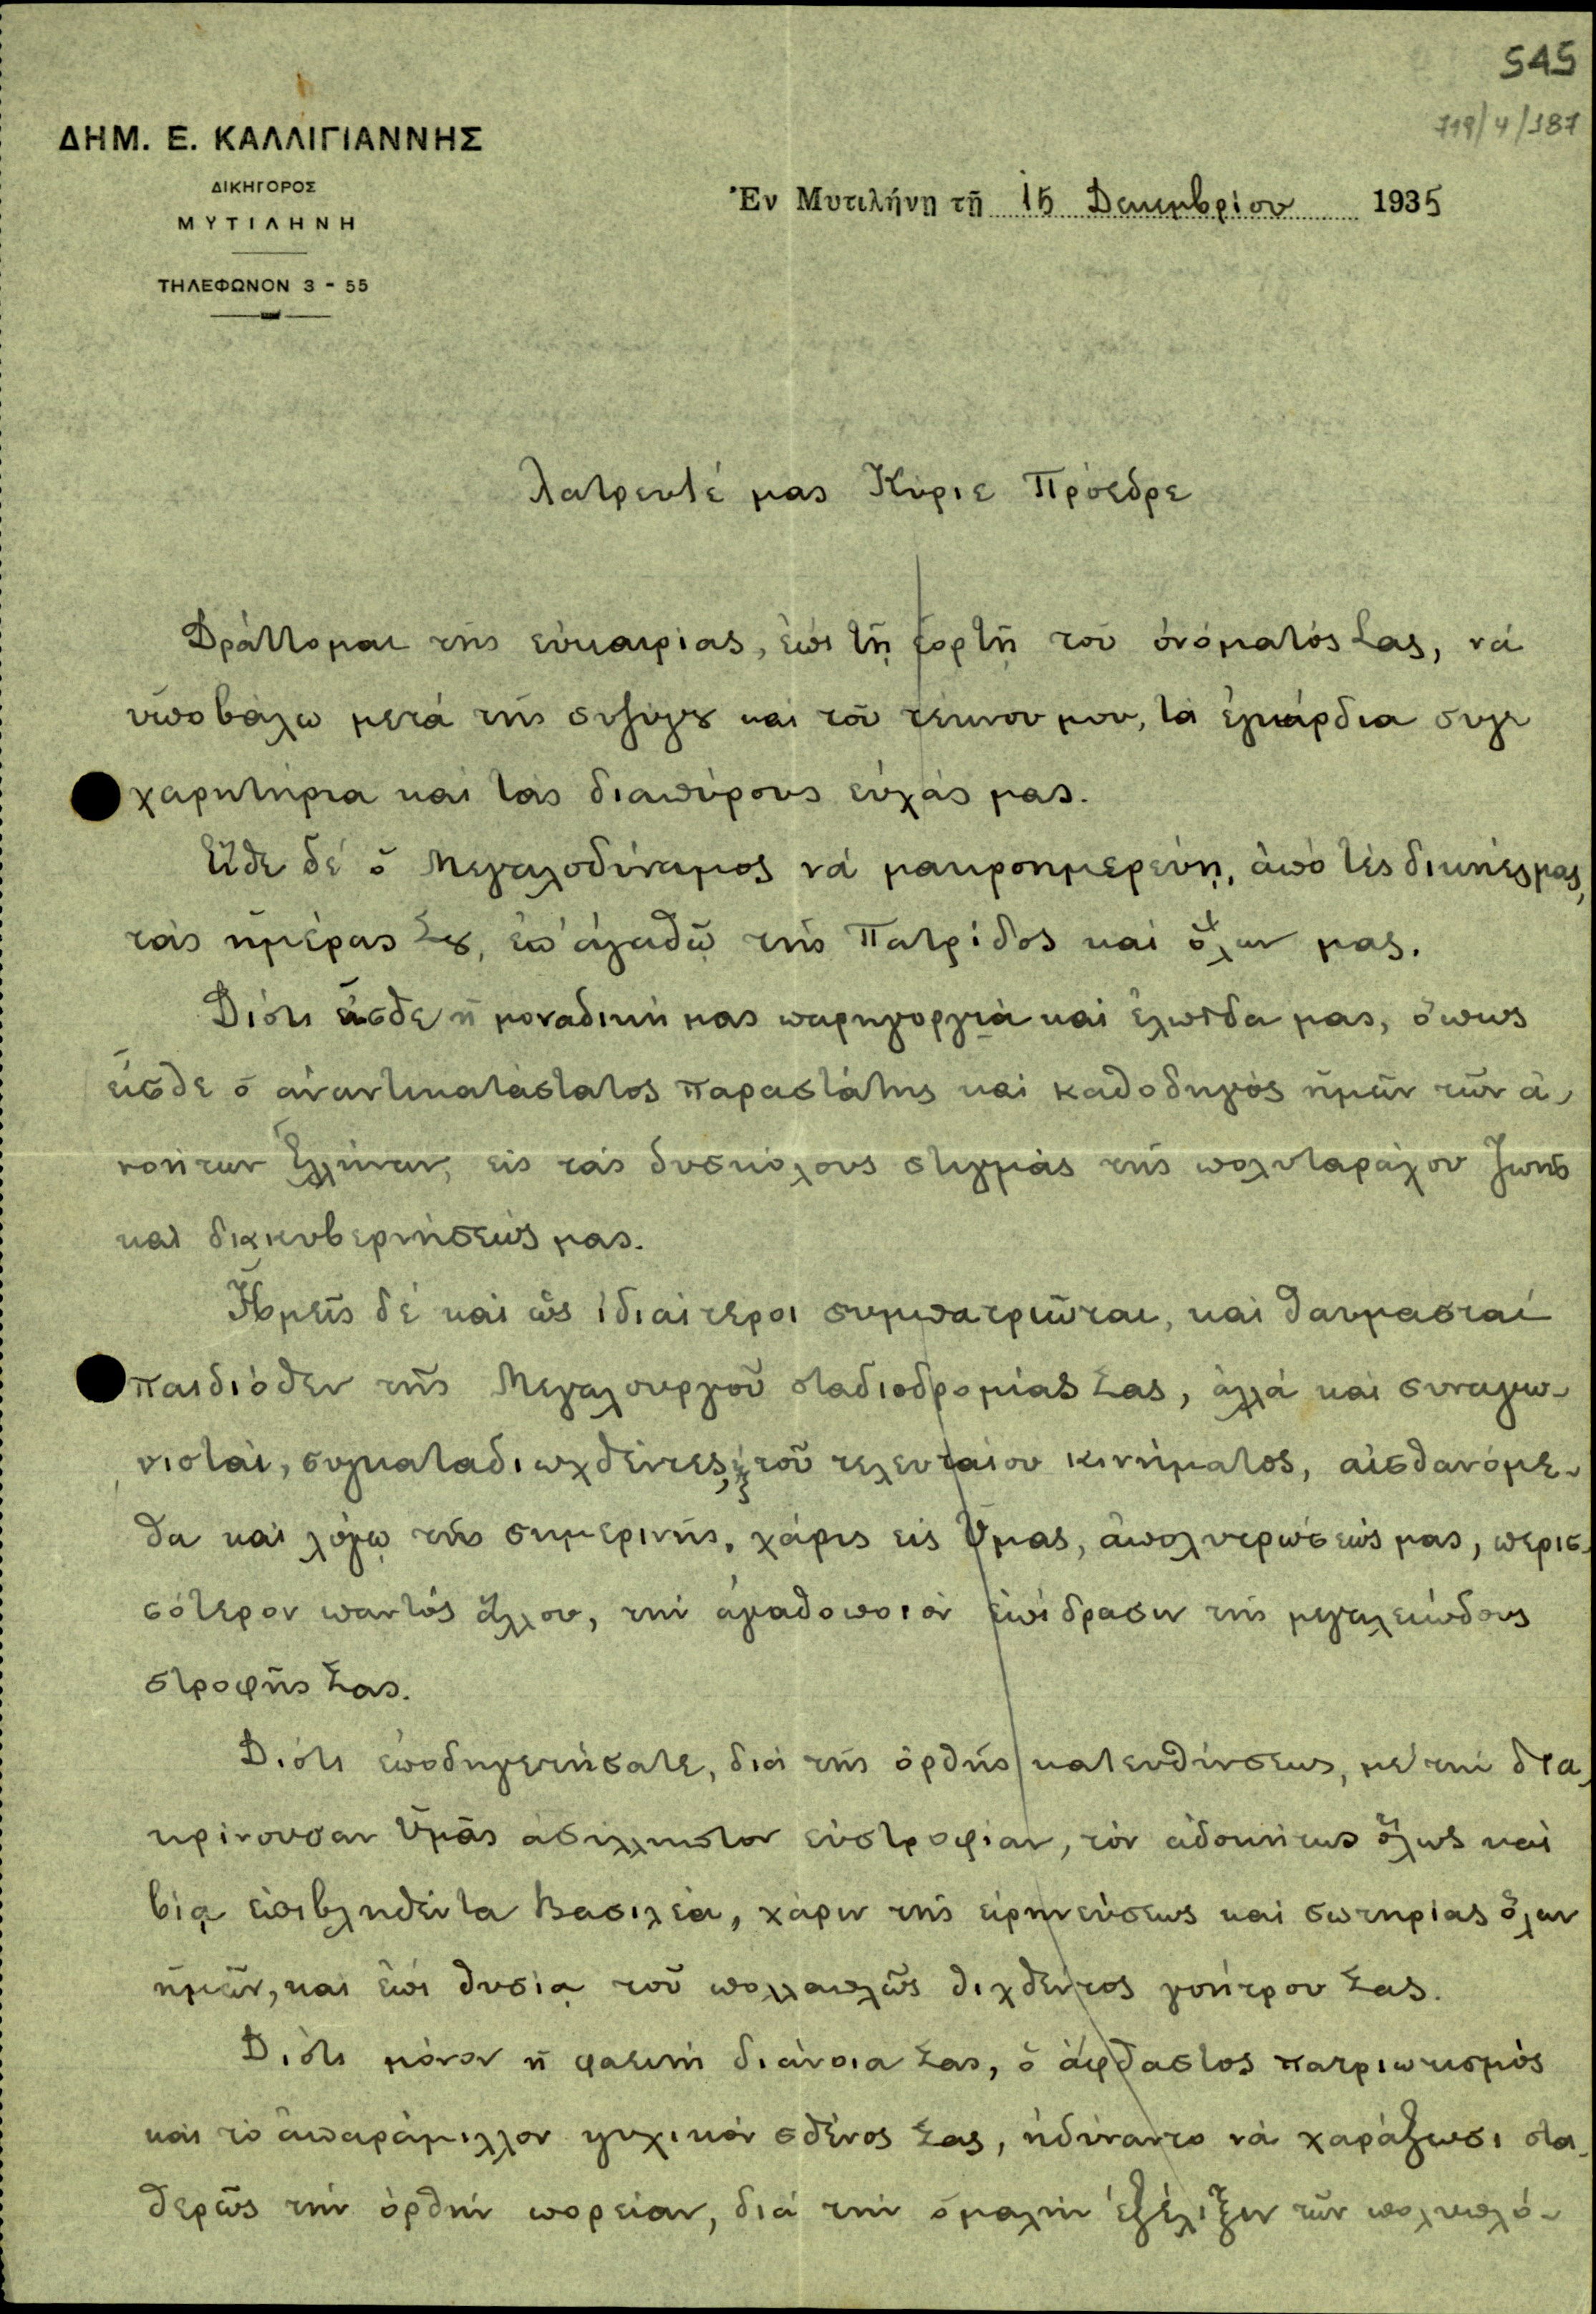 545
719/4/187
ΔΗΜ. Ε. ΚΑΛΛΙΓΙΑΝΝΗΣ
ΔΙΚΗΓΟΡΟΣ
ΜΥΤΙΛΗΝΗ
ΤΗΛΕΦΩΝΟΝ 3 - 55
Ἐν Μυτιλήνῃ τῇ 15 Δεκεμβρίου 1935
Λατρευτέ μας Κύριε Πρόεδρε
Δράττομαι τῆς εὐκαιρίας, ἐπὶ τῇ ἑορτῇ τοῦ ὀνόματός Σας, νά
ὑποβάλω μετά τῆς συζύγου καί τοῦ τέκνου μου, τά ἐγκάρδια συγ
χαρητήρια καί τάς διαπύρους εὐχάς μας.
Εἴθε δέ ὁ Μεγαλοδύναμος νά μακροημερεύῃ, ἀπό τές δικιές μας,
τάς ἡμέρας Σου, ἐπ' ἀγαθῷ τῆς Πατρίδος καί ὅλων μας.
Διότι εἶσθε ἡ μοναδική μας παρηγοργιά καί ἐλπίδα μας, ὅπως
εἶσθε ὁ ἀναντικατάστατος παραστάτης καί καθοδηγός ἡμῶν τῶν ἀ-
νοήτων Ἑλλήνων, εἰς τάς δυσκόλους στιγμάς τῆς πολυταράχου ζωῆς
καί διακυβερνήσεώς μας.
Ἡμεῖς δέ καί ὡς ἰδιαίτεροι συμπατριῶται, καί θαυμασταί
παιδιόθεν τῆς Μεγαλουργοῦ σταδιοδρομίας Σας, ἀλλά καί συναγω-
νισταί, συγκαταδιωχθέντες, ἐξ τοῦ τελευταίου κινήματος, αἰσθανόμε-
θα καί λόγῳ τῆς σημερινῆς, χάρις εἰς Ὑμᾶς, ἀπολυτρώσεώς μας, περισ-
σότερον παντός ἄλλου, τήν ἀγαθοποιόν ἐπίδρασιν τῆς μεγαλειώδους
στροφῆς Σας.
Διότι ἐποδηγετήσατε, διά τῆς ὀρθῆς κατευθύνσεως, μέ τήν δια-
κρίνουσαν Ὑμᾶς ἀσύλληπτον εὐστροφίαν, τόν ἀδοκήτως ὅλως καί
βίᾳ ἐπιβληθέντα Βασιλέα, χάριν τῆς εἰρηνεύσεως καί σωτηρίας ὅλων
ἡμῶν, καί ἐπί θυσίᾳ τοῦ πολλαπλῶς θιχθέντος γοήτρου Σας.
Διότι μόνον ἡ φαεινή διάνοια Σας, ὁ ἄφθαστος πατριωτισμός
καί τό ἀπαράμιλλον ψυχικόν σθένος Σας, ἠδύναντο νά χαράξωσι στα-
θερῶς τήν ὀρθήν πορείαν, διά τήν ὁμαλήν ἐξέλιξιν τῶν πολυπλό-